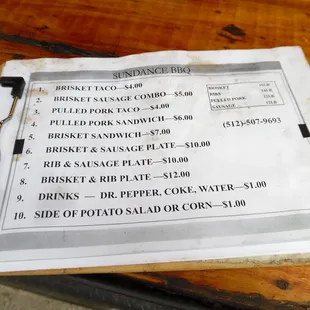 SUNDANCE BBQ
1. BRISKET TACO—$4.00
2. BRISKET SAUSAGE COMBO—$5.00
3. PULLED PORK TACO—$4.00
4. PULLED PORK SANDWICH—$6.00
5. BRISKET SANDWICH—$7.00
6. BRISKET & SAUSAGE PLATE—$10.00
7. RIB & SAUSAGE PLATE—$10.00
8. BRISKET & RIB PLATE—$12.00
9. DRINKS — DR. PEPPER, COKE, WATER—$1.00
10. SIDE OF POTATO SALAD OR CORN—$1.00
BRISKET
RIBS
PULLED PORK
SAUSAGE
(512)-507-9693